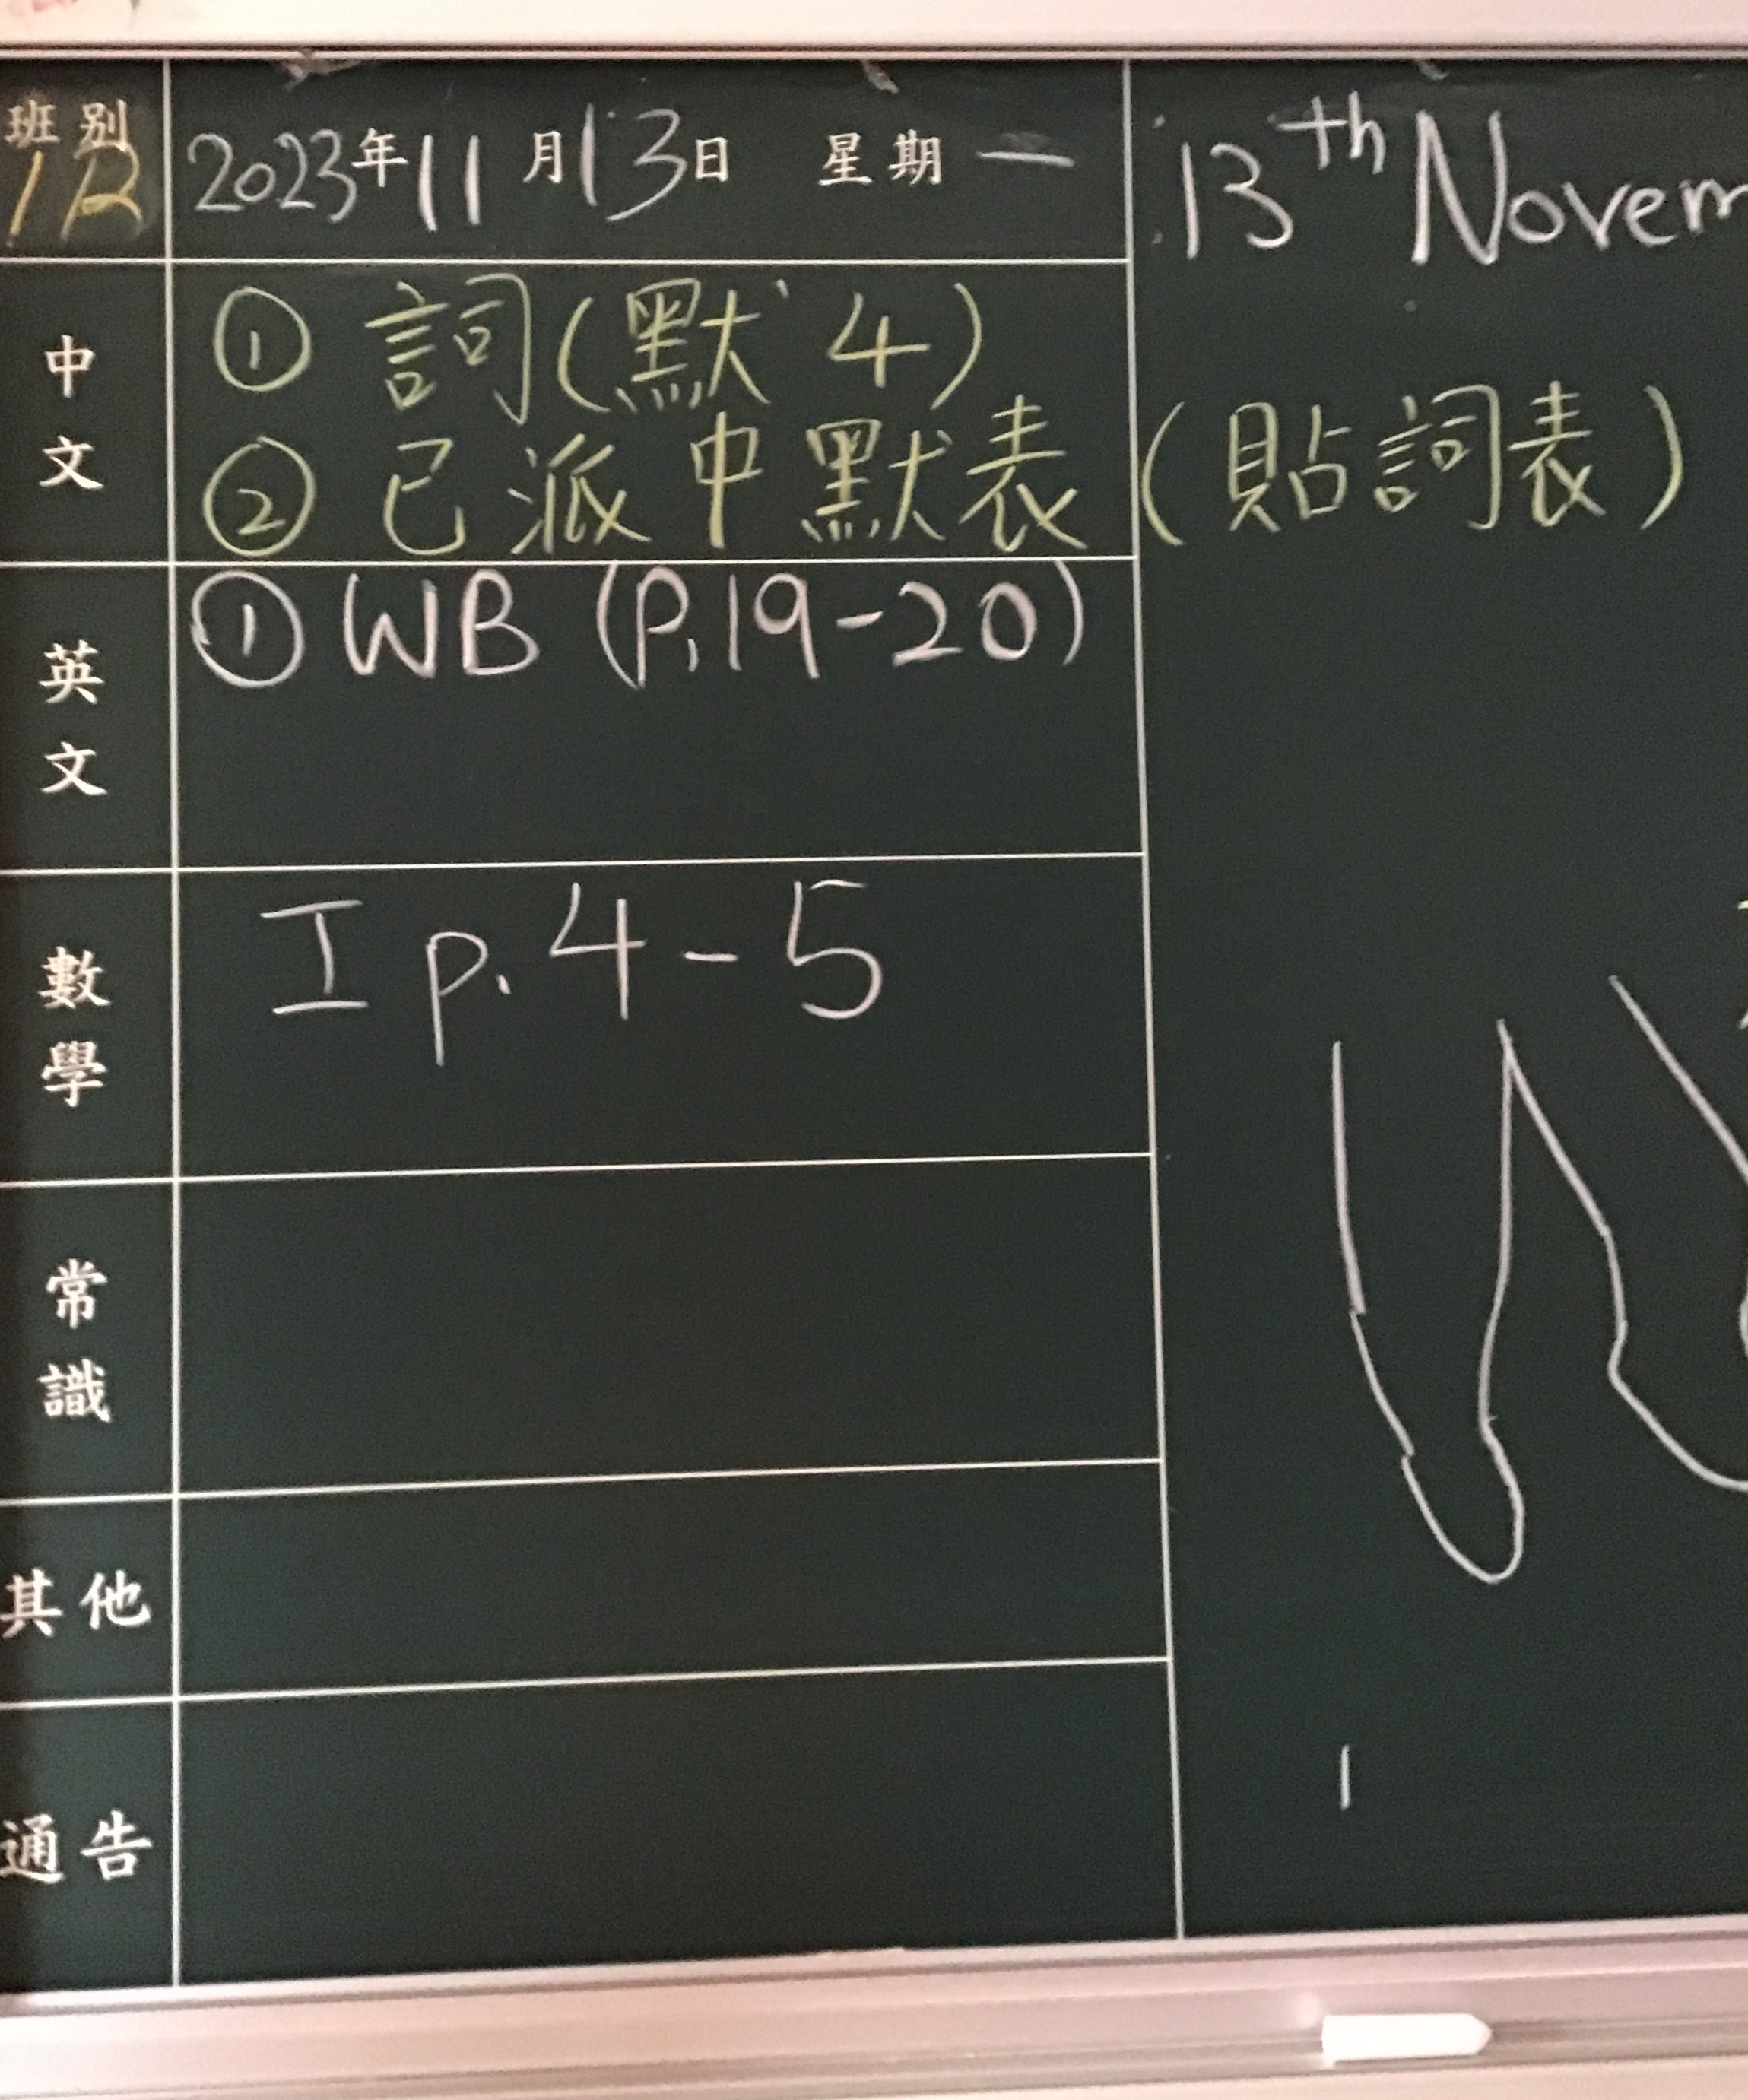 班別 2023年11月13日 星期一 13th Novem
1B
中文 ① 詞(默4)
② 已派中默表(貼詞表)
英文 ① WB (P.19-20)
數學 I p.4-5
常識
其他
通告